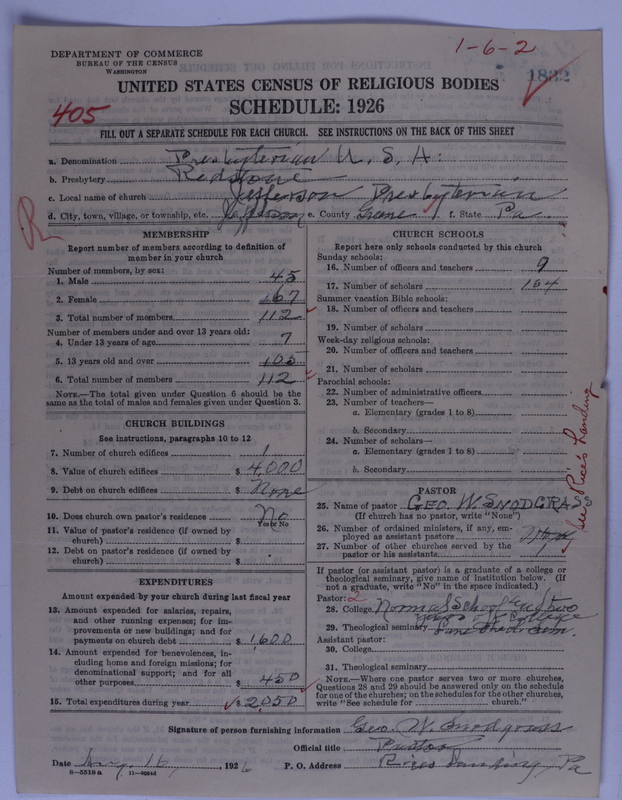 DEPARTMENT OF COMMERCE
BUREAU OF THE CENSUS
WASHINGTON
1-6-2
1832
UNITED STATES CENSUS OF RELIGIOUS BODIES
SCHEDULE: 1926
405
FILL OUT A SEPARATE SCHEDULE FOR EACH CHURCH. SEE INSTRUCTIONS ON THE BACK OF THIS SHEET
a. Denomination Presbyterian U. S. A.
b. Presbytery Redstone
c. Local name of church Jefferson Presbyterian
d. City, town, village, or township, etc. Jefferson e. County Greene f. State Pa
R
MEMBERSHIP
Report number of members according to definition of
member in your church
Number of members, by sex:
1. Male 45
2. Female 67
3. Total number of members 112
Number of members under and over 13 years old:
4. Under 13 years of age 7
5. 13 years old and over 105
6. Total number of members 112
NOTE.—The total given under Question 6 should be the
same as the total of males and females given under Question 3.
CHURCH BUILDINGS
See instructions, paragraphs 10 to 12
7. Number of church edifices 1
8. Value of church edifices $ 4,000
9. Debt on church edifices $ None
10. Does church own pastor's residence No
Yes or No
11. Value of pastor's residence (if owned by
church) $
12. Debt on pastor's residence (if owned by
church) $
EXPENDITURES
Amount expended by your church during last fiscal year
13. Amount expended for salaries, repairs,
and other running expenses; for im-
provements or new buildings; and for
payments on church debt $ 1600
14. Amount expended for benevolences, in-
cluding home and foreign missions; for
denominational support; and for all
other purposes $ 450
15. Total expenditures during year $ 2050
CHURCH SCHOOLS
Report here only schools conducted by this church
Sunday schools:
16. Number of officers and teachers 9
17. Number of scholars 104
Summer vacation Bible schools:
18. Number of officers and teachers
19. Number of scholars
Week-day religious schools:
20. Number of officers and teachers
21. Number of scholars
Parochial schools:
22. Number of administrative officers
23. Number of teachers—
a. Elementary (grades 1 to 8)
b. Secondary
24. Number of scholars—
a. Elementary (grades 1 to 8)
b. Secondary
See Rice's Landing
PASTOR
25. Name of pastor GEO. W. SNODGRASS
(If church has no pastor, write "None")
26. Number of ordained ministers, if any, em-
ployed as assistant pastors
27. Number of other churches served by the
pastor or his assistants
If pastor (or assistant pastor) is a graduate of a college or
theological seminary, give name of institution below. (If
not a graduate, write "No" in the space indicated.)
Pastor: 2
28. College Normal School and two
years of College
29. Theological seminary Lane Theo. Sem.
Assistant pastor:
30. College
31. Theological seminary
NOTE.—Where one pastor serves two or more churches,
Questions 28 and 29 should be answered only on the schedule
for one of the churches; on the schedules for the other churches
write "See schedule for church."
Signature of person furnishing information Geo. W. Snodgrass
Official title Pastor
Date Aug. 16, 1926 P. O. Address Rices Landing, Pa
8—5518a 11—9064d